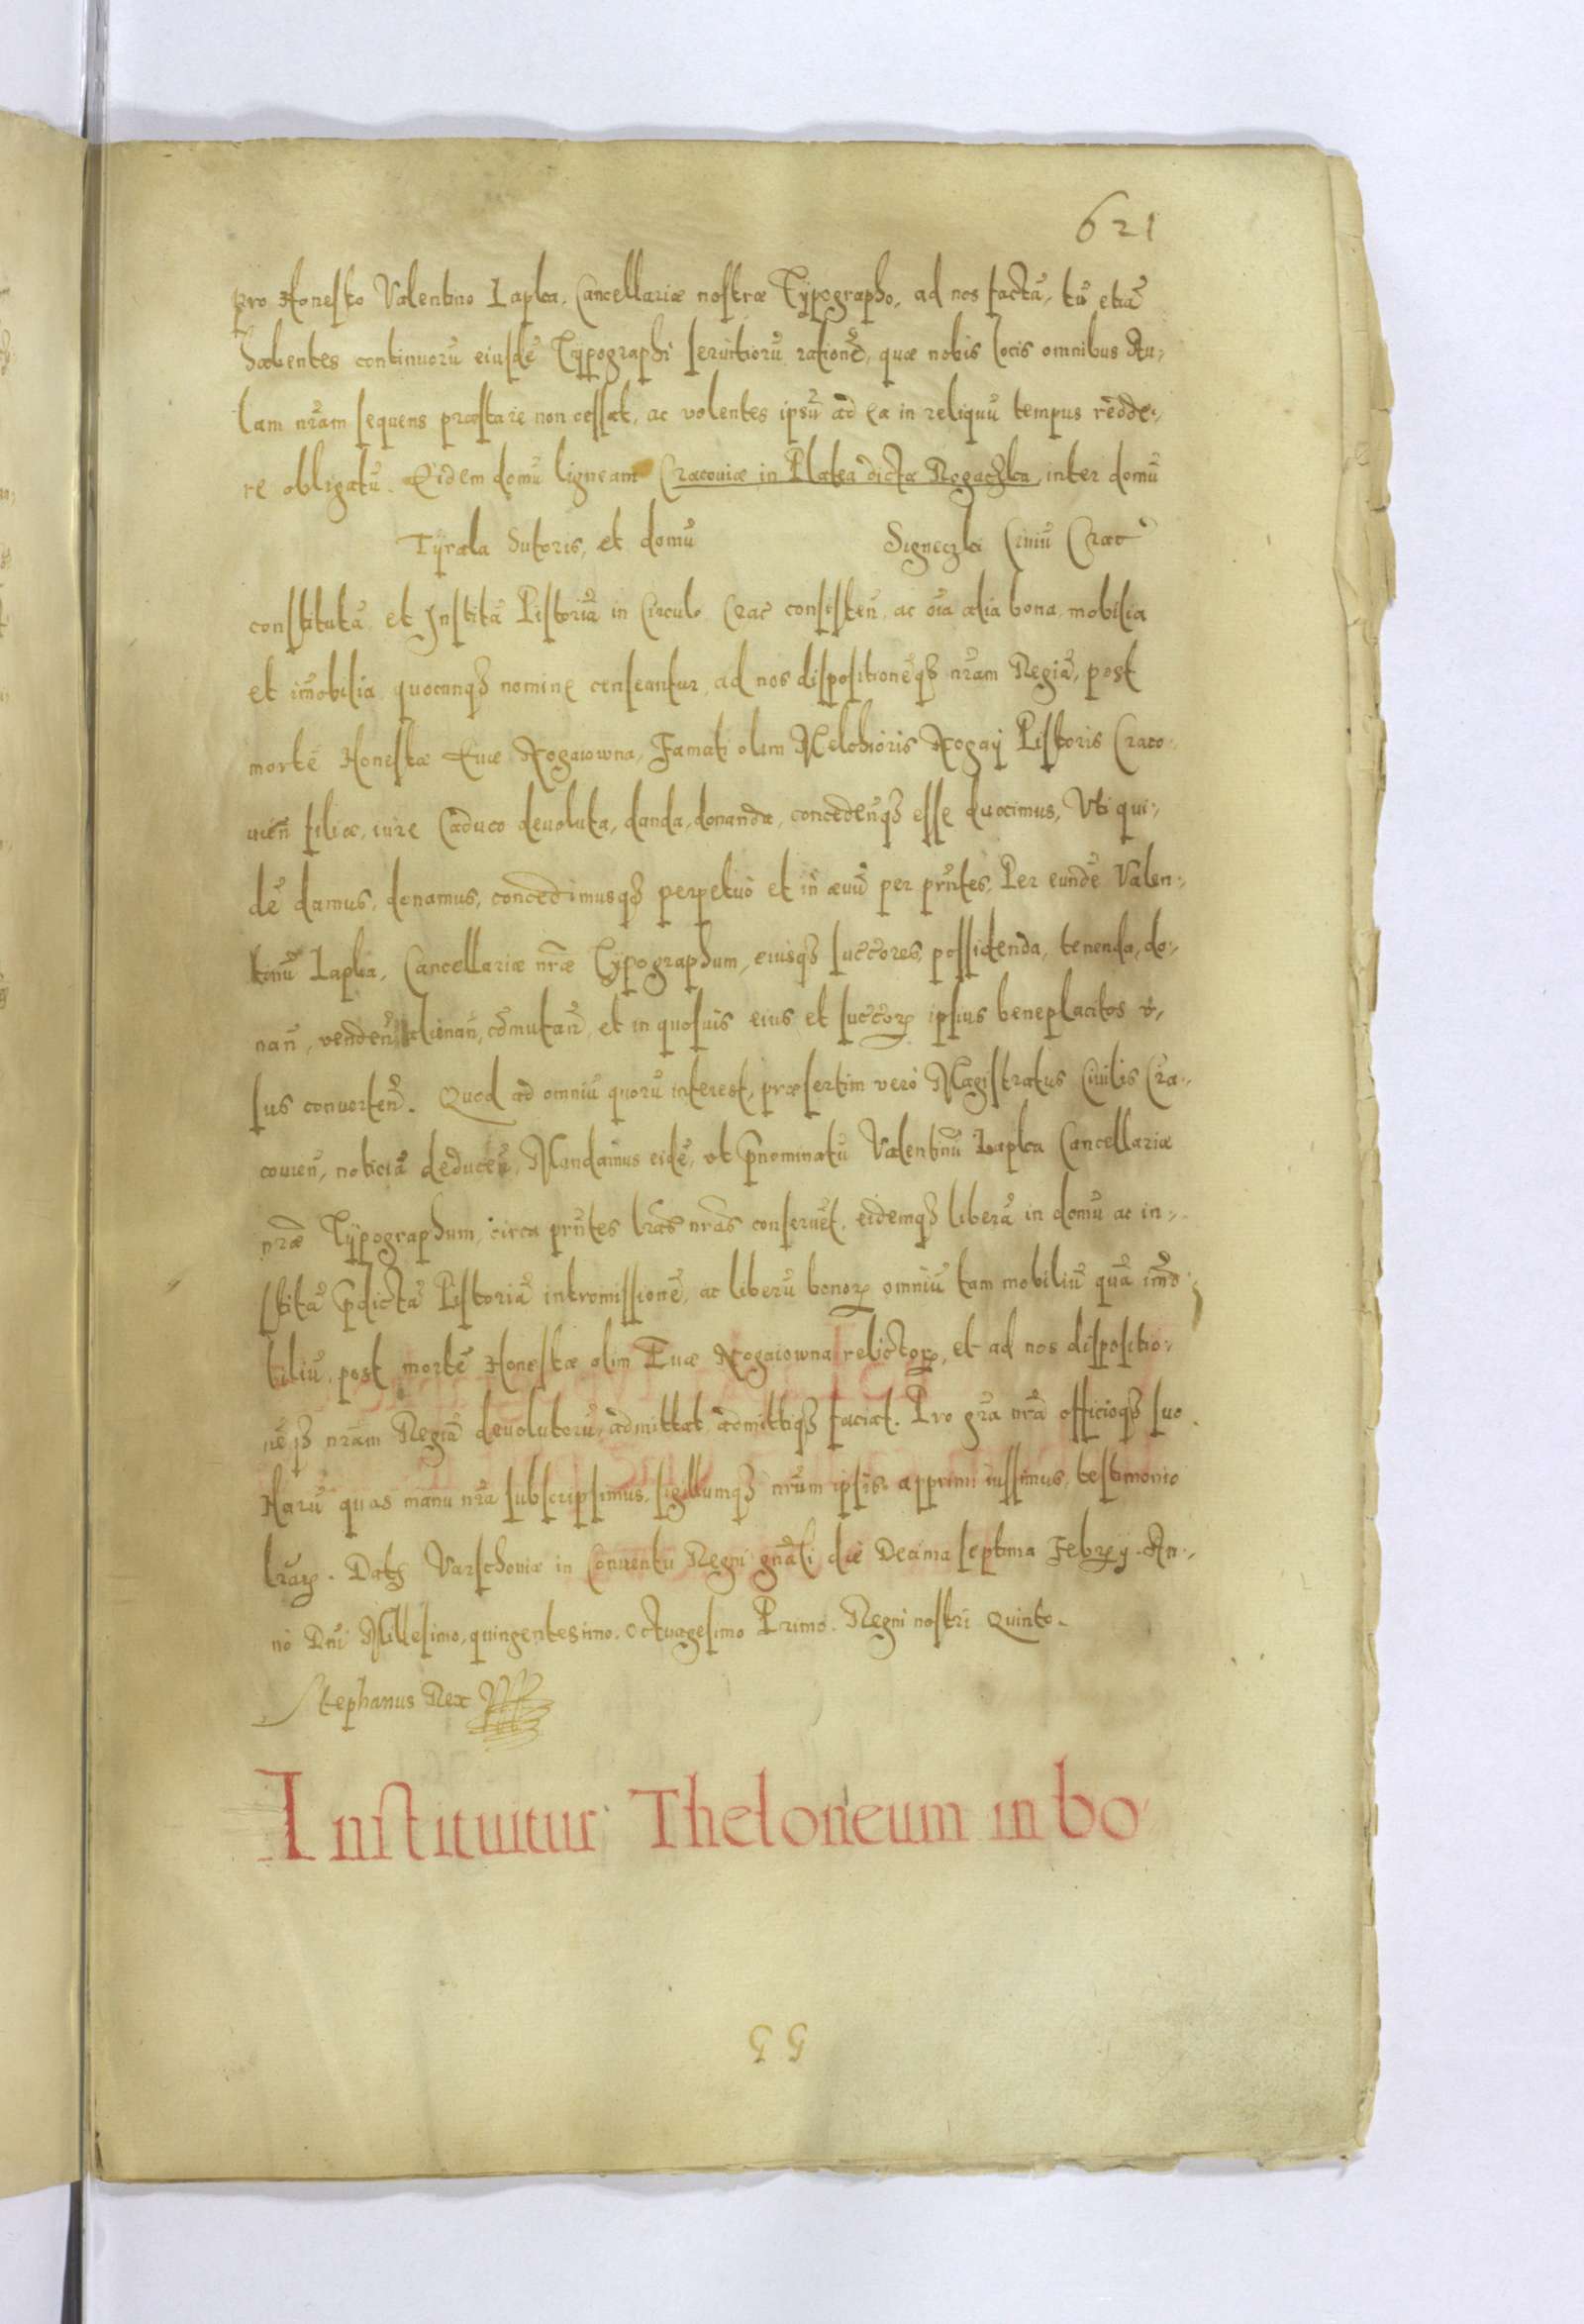 621
pro Honesto Valentino Lapka, Cancellariæ nostræ Typographo, ad nos factã, tũ etiã
habentes continuorũ eiusdẽ Typographi seruitiorũ rationẽ, quæ nobis locis omnibus Au-
lam nr̃am sequens præstare non cessat, ac volentes ipsũ ad ea in reliquũ tempus redde-
re obligatũ. Eidem domũ ligneam Cracouiæ in Platea dicta Rogaczka, inter domũ
Tyrala Sutoris, et domũ Signeczki Ciuiũ Crac̃
constitutã, et Institã Pistoriã in Circulo Crac̃ consisteñ, ac oĩa alia bona mobilia
et im̃obilia quocunqꝫ nomine censeantur, ad nos dispositionẽqꝫ nr̃am Regiã, post
mortẽ Honestæ Euæ Rogaiowna, Famati olim Melchioris Rogay Pistoris Craco-
uieñ filiæ, iure Caduco deuoluta, danda, donanda, concedeñqꝫ esse duximus, Vti qui-
dẽ damus, donamus, concedimusqꝫ perpetuò et in æuũ per pñtes, Per eundẽ Valen-
tinũ Lapka, Cancellariæ nr̃æ Typographum, eiusqꝫ succ̃ores, possidenda, tenenda, do-
nañ, vendeñ, alienañ, com̃utañ, et in quosuis eius et succ̃oꝝ ipsius beneplacitos v-
sus conuerteñ. Quod ad omniũ quorũ interest, præsertim verò Magistratus Ciuilis Cra-
couieñ, noticiã deduceñ, Mandamus eidẽ, vt p̃nominatũ Valentinũ Lapka Cancellariæ
nr̃æ Typographum, circa pñtes lr̃as nr̃as conseruet, eidemqꝫ liberã in domũ ac in-
stitã p̃dictã Pistoriã intromissionẽ, ac liberũ bonoꝝ omniũ tam mobiliũ quã im̃o-
biliũ, post mortẽ Honestæ olim Euæ Rogaiowna relictoꝝ, et ad nos dispositio-
nẽqꝫ nr̃am Regiã deuolutorũ, admittat, admittiqꝫ faciat. Pro gr̃a nr̃a officioqꝫ suo.
Harũ quas manu nr̃a subscripsimus, sigillumqꝫ nr̃um ipsis apprimi iussimus, testimonio
lr̃aꝝ. Datꝫ Varschouiæ in Conuentu Regni gñali die Decima septima Febꝝy. An-
no Dñi Millesimo, quingentesimo, octuagesimo Primo. Regni nostri Quinto.
Stephanus Rex
Instituitur Theloneum in bo